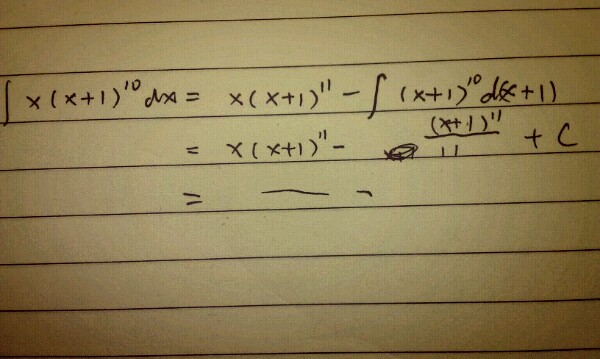 ∫ x(x+1)¹⁰ dx = x(x+1)¹¹ - ∫ (x+1)¹⁰ d(x+1)
= x(x+1)¹¹ - (x+1)¹¹/11 + C
=